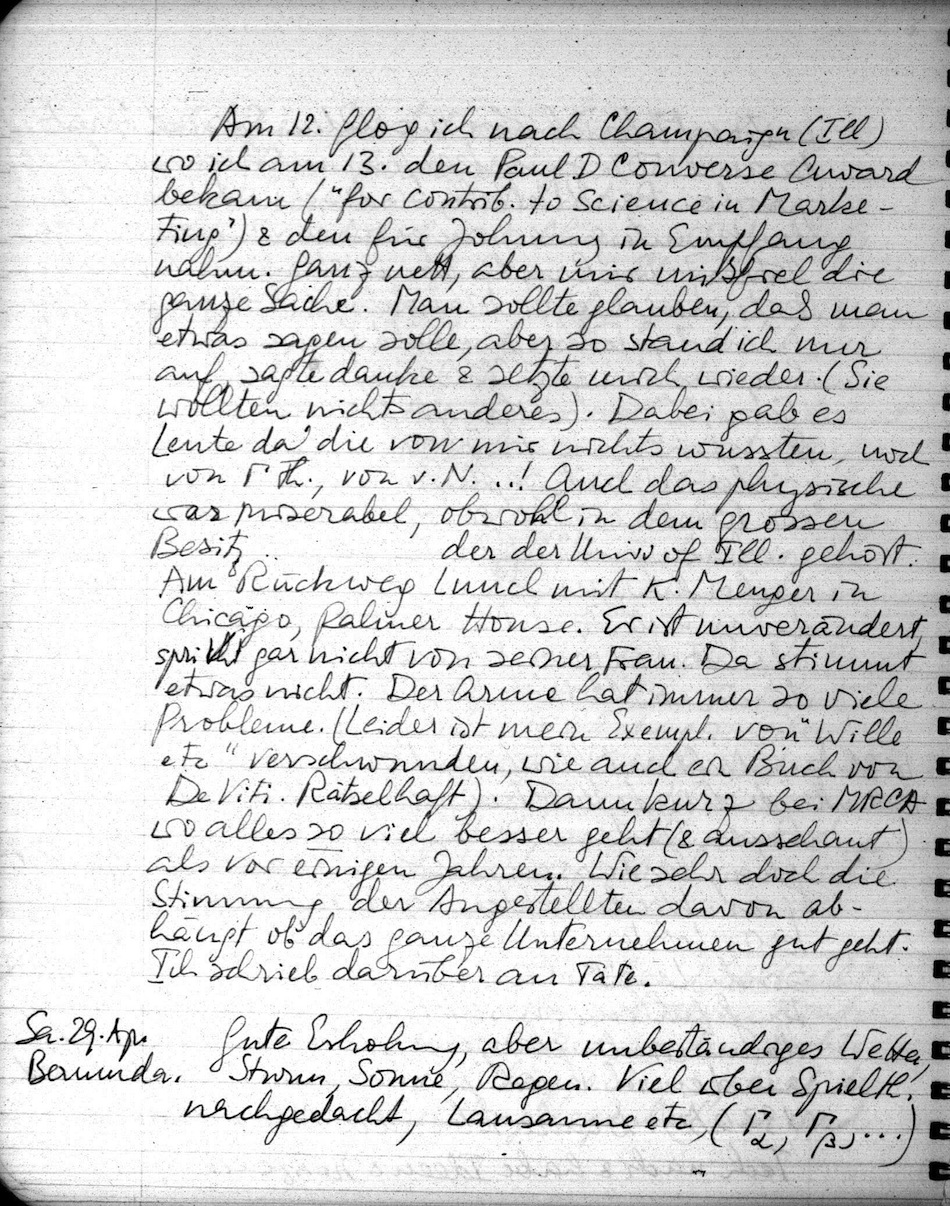 Am 12. flog ich nach Champaign (Ill)
wo ich am 13. den Paul D Converse Award
bekam ("for contrib. to Science in Marke-
ting") & den für Johnny in Empfang
nahm. Ganz nett, aber mir missfiel die
ganze Sache. Man sollte glauben, dass man
etwas sagen solle, aber so stand ich nur
auf, sagte danke & setzte mich wieder. (Sie
wollten nichts anderes). Dabei gab es
Leute da die von mir nichts wussten, noch
von Γ Th., von v. N. ..! Auch das physische
war miserabel, obwohl in dem grossen
Besitz .. der der Univ of Ill. gehört.
Am Rückweg Lunch mit K. Menger in
Chicago, Palmer House. Er ist unverändert,
spricht gar nicht von seiner Frau. Da stimmt
etwas nicht. Der Arme hat immer so viele
Probleme. (Leider ist mein Exempl. von "Wille
etc" verschwunden, wie auch ein Buch von
De Viti. Rätselhaft). Dann kurz bei MRCA
wo alles so viel besser geht (& ausschaut)
als vor einigen Jahren. Wie sehr doch die
Stimmung der Angestellten davon ab-
hängt ob das ganze Unternehmen gut geht.
Ich schrieb darüber an Tate.
Sa. 29. Apr. Gute Erholung, aber unbeständiges Wetter,
Bermuda. Sturm, Sonne, Regen. Viel über Spielth.
nachgedacht, Lausanne etc, (Γα, Γβ, ...)